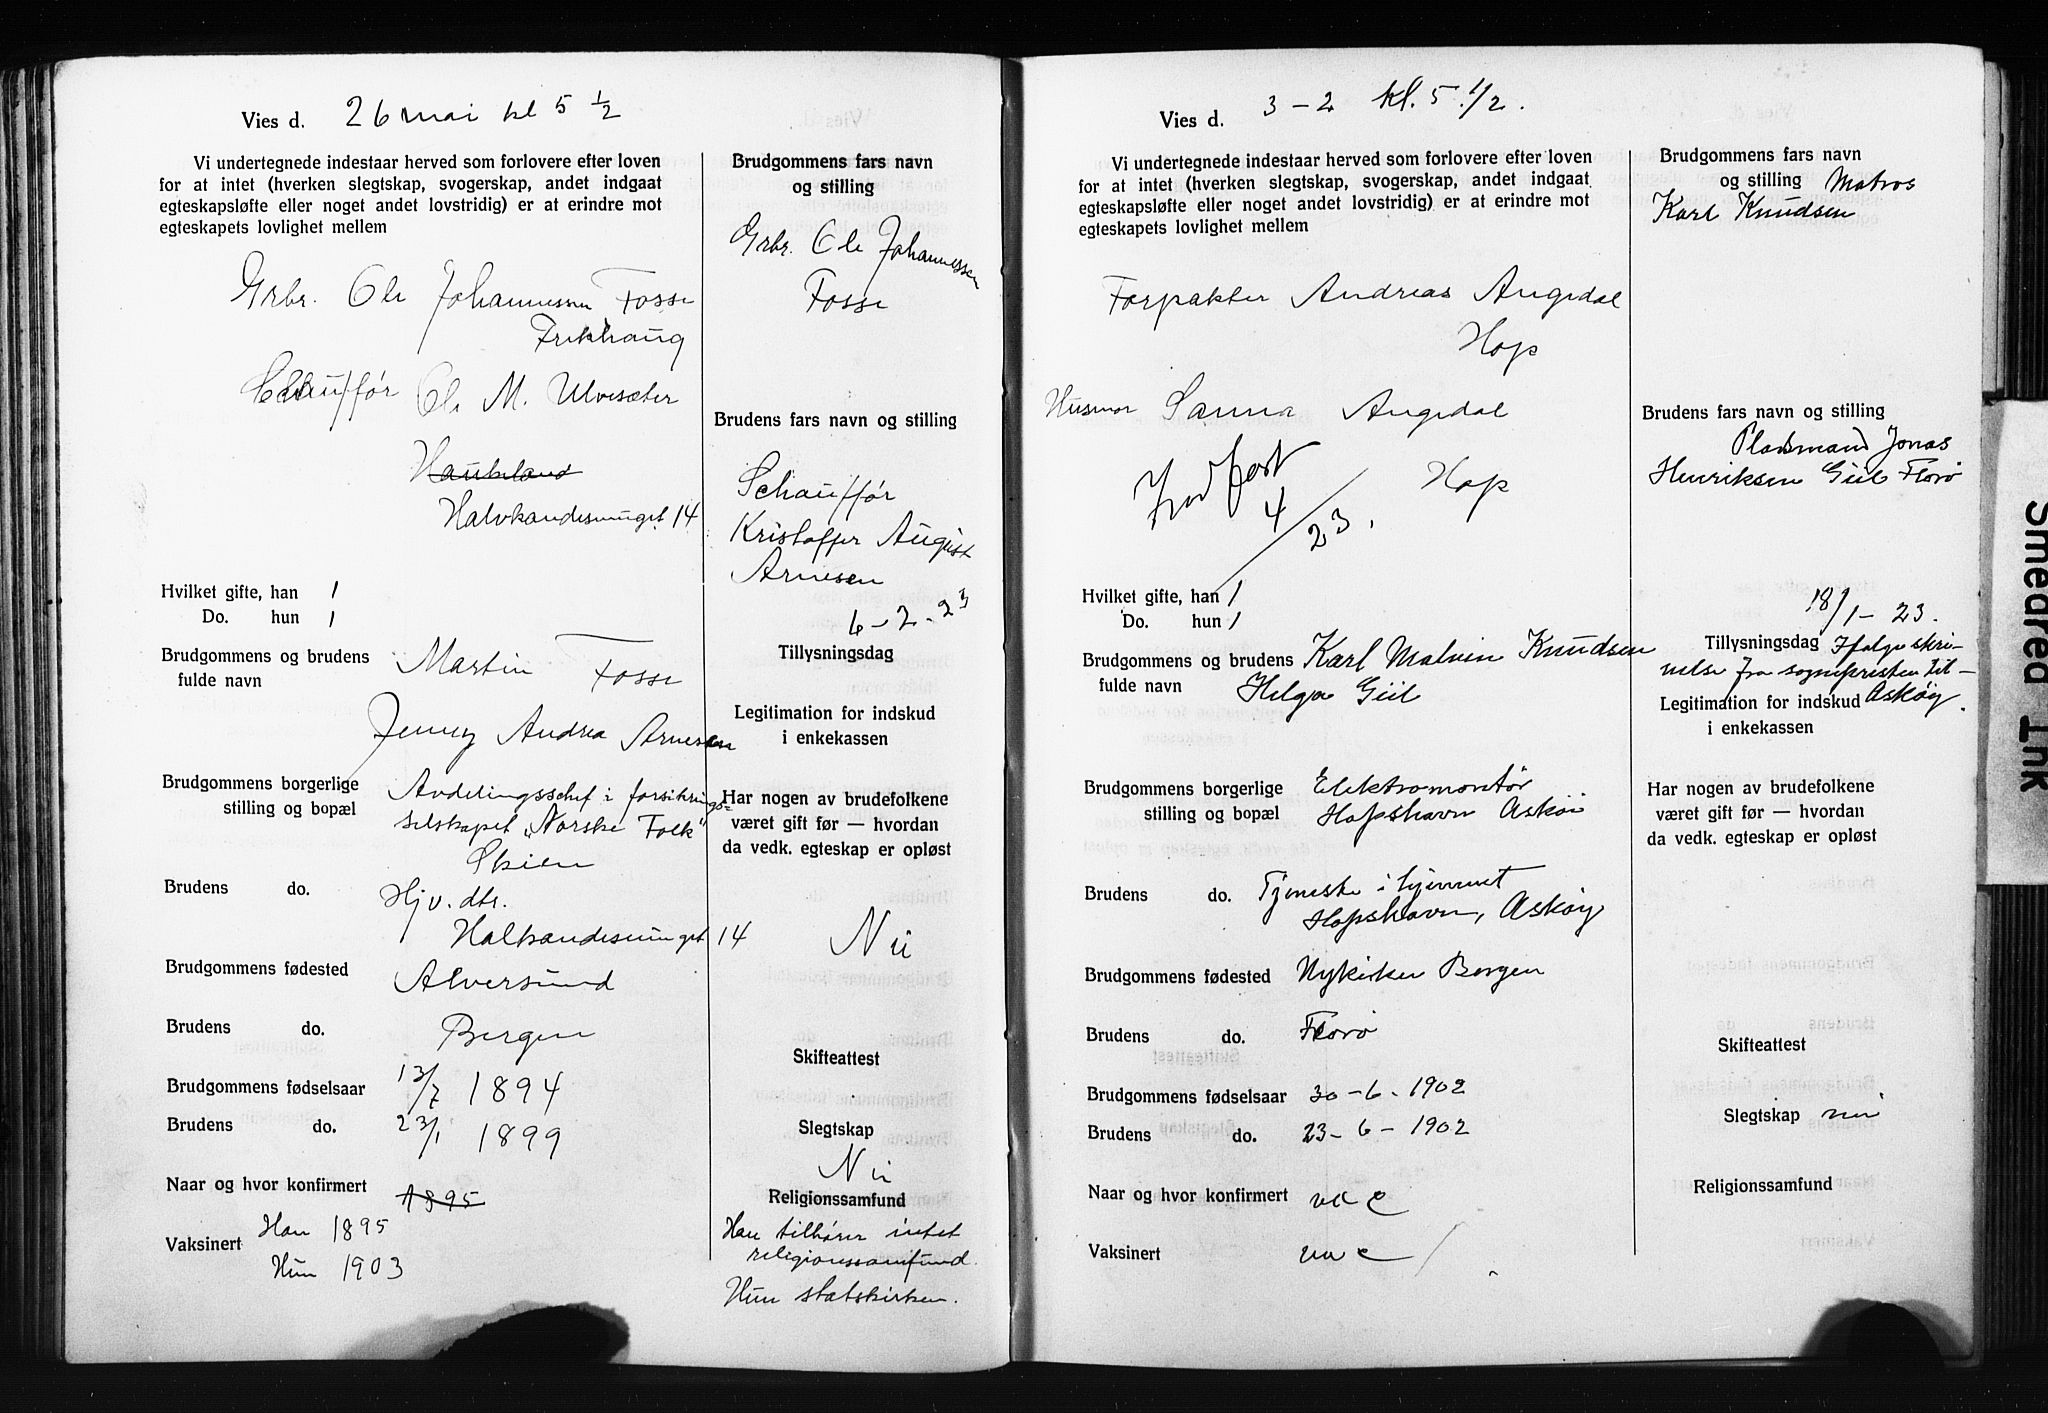 Vies d. 26 mai kl 5 1/2
Vi undertegnede indestaar herved som forlovere efter loven
for at intet (hverken slegtskap, svogerskap, andet indgaat
egteskapsløfte eller noget andet lovstridig) er at erindre mot
egteskapets lovlighet mellem
Grbr. Ole Johannessen Fosse
Frekhaug
Schauffør Ole M. Ulvesæter
Haukeland
Halvkandesmuget 14
Hvilket gifte, han 1
Do. hun 1
Brudgommens og brudens
fulde navn
Martin Fosse
Jenny Andrea Arnesen
Brudgommens borgerlige
stilling og bopæl
Avdelingsschef i forsikrings=
selskapet "Norske Folk"
Skien
Brudens do.
Hjv. dtr.
Halkandesmuget 14
Brudgommens fødested Alversund
Brudens do. Bergen
Brudgommens fødselsaar 13/7 1894
Brudens do. 23/1 1899
Naar og hvor konfirmert 1895
Vaksinert Han 1895
Hun 1903
Brudgommens fars navn
og stilling
Grbr. Ole Johannessen
Fosse
Brudens fars navn og stilling
Schauffør
Kristoffer August
Arnesen
6-2-23
Tillysningsdag
Legitimation for indskud
i enkekassen
Har nogen av brudefolkene
været gift før — hvordan
da vedk. egteskap er opløst
Nei
Skifteattest
Slegtskap
Nei
Religionssamfund
Han tilhører intet
religionssamfund.
Hun statskirken.
Vies d. 3-2 kl. 5 1/2.
Vi undertegnede indestaar herved som forlovere efter loven
for at intet (hverken slegtskap, svogerskap, andet indgaat
egteskapsløfte eller noget andet lovstridig) er at erindre mot
egteskapets lovlighet mellem
Forpakter Andreas Angedal
Hop
Husmor Sanna Angedal
Hop
4/23.
Hvilket gifte, han 1
Do. hun 1
Brudgommens og brudens
fulde navn
Karl Malvin Knudsen
Helga Giil
Brudgommens borgerlige
stilling og bopæl
Elektromontør
Hopshavn Askøi
Brudens do. Tjeneste i hjemmet
Hopshavn, Askøy
Brudgommens fødested Nykirken Bergen
Brudens do. Florø
Brudgommens fødselsaar 30-6-1902
Brudens do. 23-6-1902
Naar og hvor konfirmert
Vaksinert
Brudgommens fars navn
og stilling Matros
Karl Knudsen
Brudens fars navn og stilling
Pladsmand Jonas
Henriksen Giil Florø
18/1-23.
Tillysningsdag Ifølge skri-
velse fra sognepresten til
Askøy.
Legitimation for indskud
i enkekassen
Har nogen av brudefolkene
været gift før — hvordan
da vedk. egteskap er opløst
Skifteattest
Slegtskap nei
Religionssamfund
Smedred Ink